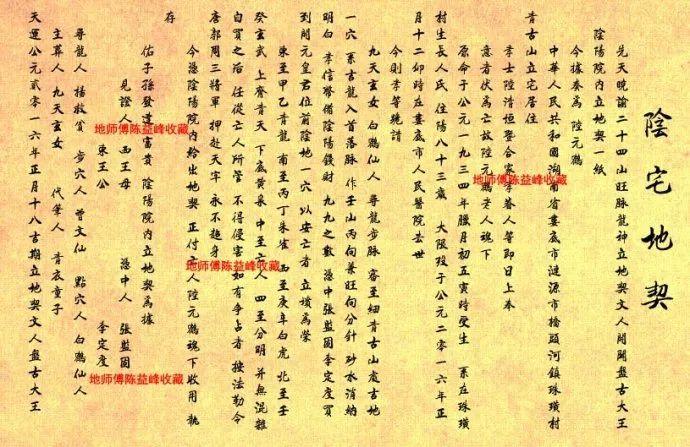 陰宅地契
兒天晚諭二十四山旺脉龍神立地契文人開闢盤古大王
陰陽院內立地契一紙
今據奏爲 陸元鵝
中華人民共和國湖南省婁底市漣源市橋頭河鎮珠璜村
青古山立宅居住
孝士陸清恒暨合家孝眷人等即日上奉
意者伏爲亡故陸元鵝老人魂下
原命于公元一九三四年臘月初五寅時受生 系在珠璜
村生長人氏 住陽八十三歲 大限殁于公元二零一六年正
月十二卯時在婁底市人民醫院去世
今則孝等虔請
九天玄女 白鶴仙人 尋龍步脉 審至細青古山處吉地
一穴 系玄龍入首落脉 作壬山丙向兼旺向分針 砂水消納
明白 孝信等備陰陽錢財 九九之數 憑中張監固李定度買
到開元皇君位前陰地一穴 以安亡者 立墳爲塋
東至甲乙青龍 南至丙丁朱雀 西至庚辛白虎 北至壬
癸玄武 上齊青天 下底黄泉 中至亡人 四至分明 并無混雜
自買之后 任從亡人所管 不得侵害 如有争占者 按法勒令
唐郭周三將軍 押赴天牢 永不超身
今憑陰陽院內給出地契 正付亡人陸元鵝魂下收用 執
存
佑子孫發達富貴 陰陽院內立地契爲據
見證人 西王母 東王公 憑中人 張監固 李定度
尋龍人 楊救貧 步穴人 曾文仙 點穴人 白鶴仙人
主葬人 九天玄女 代筆人 青衣童子
天運公元貳零一六年正月十八吉期立地契文人盤古大王
地师傅陈益峰收藏
地师傅陈益峰收藏
地师傅陈益峰收藏
地师傅陈益峰收藏